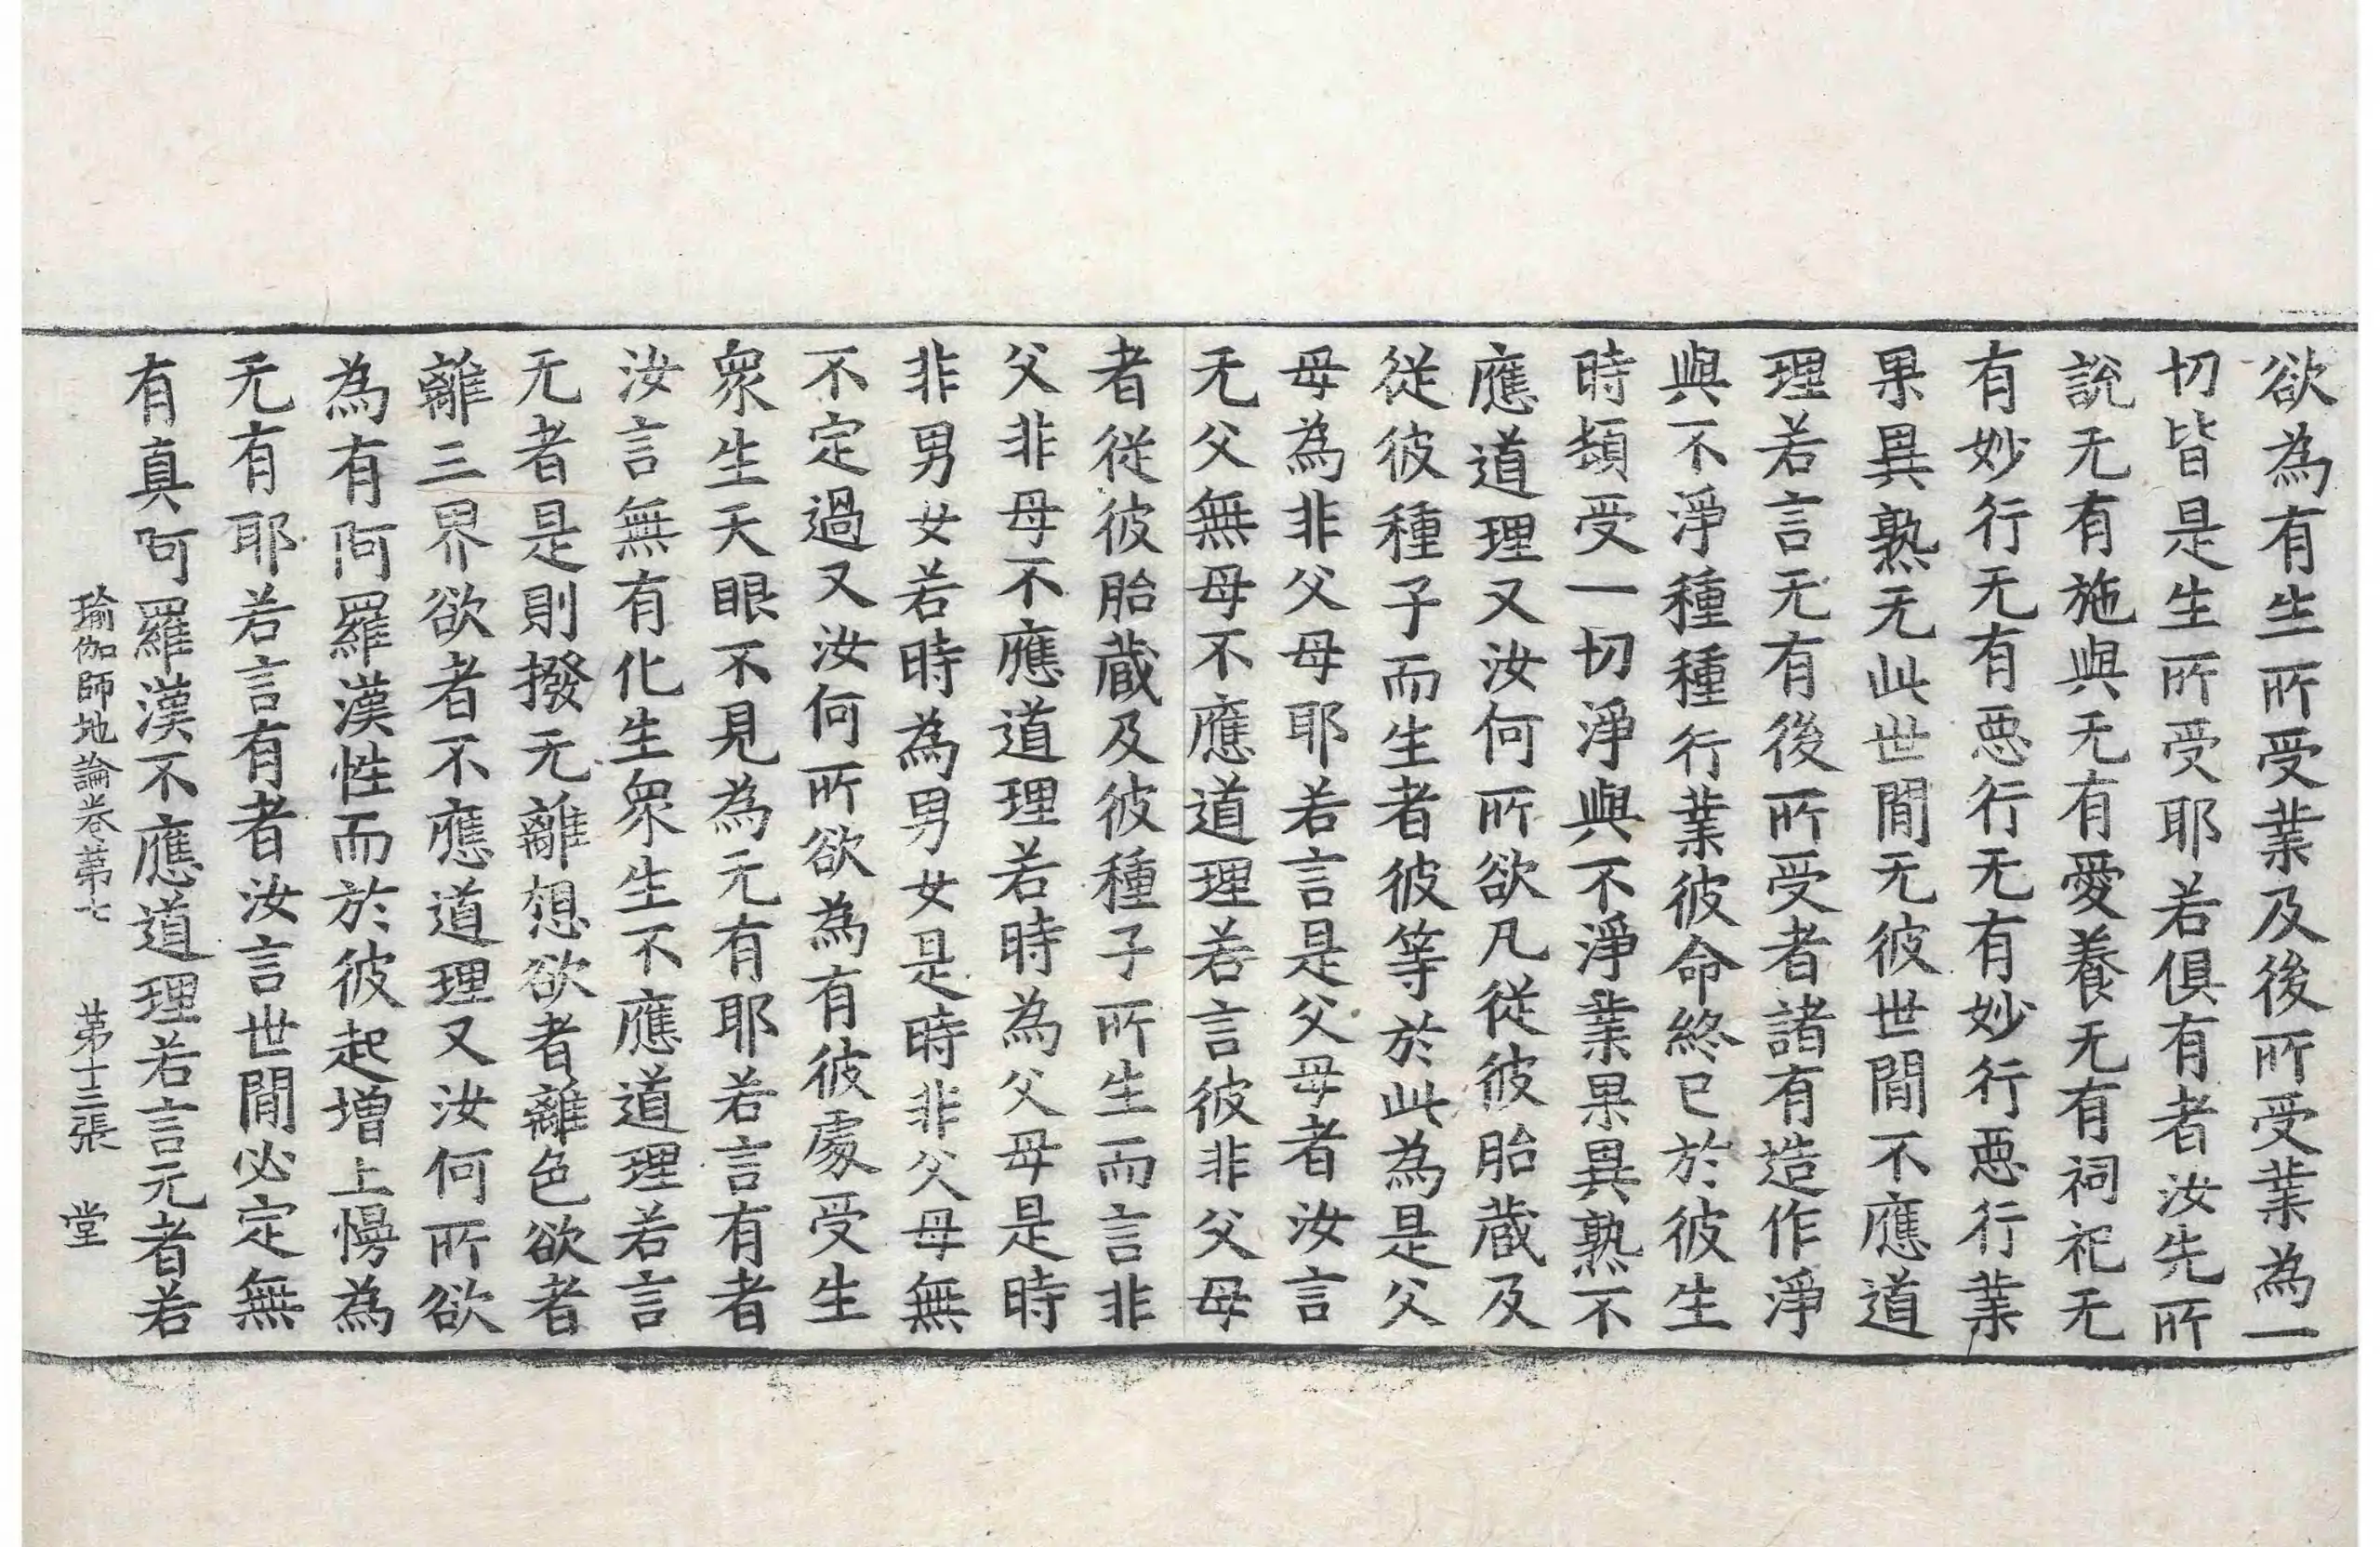 欲為有生所受業及後所受業為一
切皆是生所受耶若俱有者汝先所
說无有施與无有愛養无有祠祀无
有妙行无有惡行无有妙行惡行業
果異熟无此世間无彼世間不應道
理若言无有後所受者諸有造作淨
與不淨種種行業彼命終已於彼生
時頓受一切淨與不淨業果異熟不
應道理又汝何所欲凡從彼胎藏及
從彼種子而生者彼等於此為是父
母為非父母耶若言是父母者汝言
无父無母不應道理若言彼非父母
者從彼胎藏及彼種子所生而言非
父非母不應道理若時為父母是時
非男女若時為男女是時非父母無
不定過又汝何所欲為有彼處受生
衆生天眼不見為无有耶若言有者
汝言無有化生衆生不應道理若言
无者是則撥无離想欲者離色欲者
離三界欲者不應道理又汝何所欲
為有阿羅漢性而於彼起增上慢為
无有耶若言有者汝言世間必定無
有真阿羅漢不應道理若言无者若
瑜伽師地論卷第七 第十三張 堂